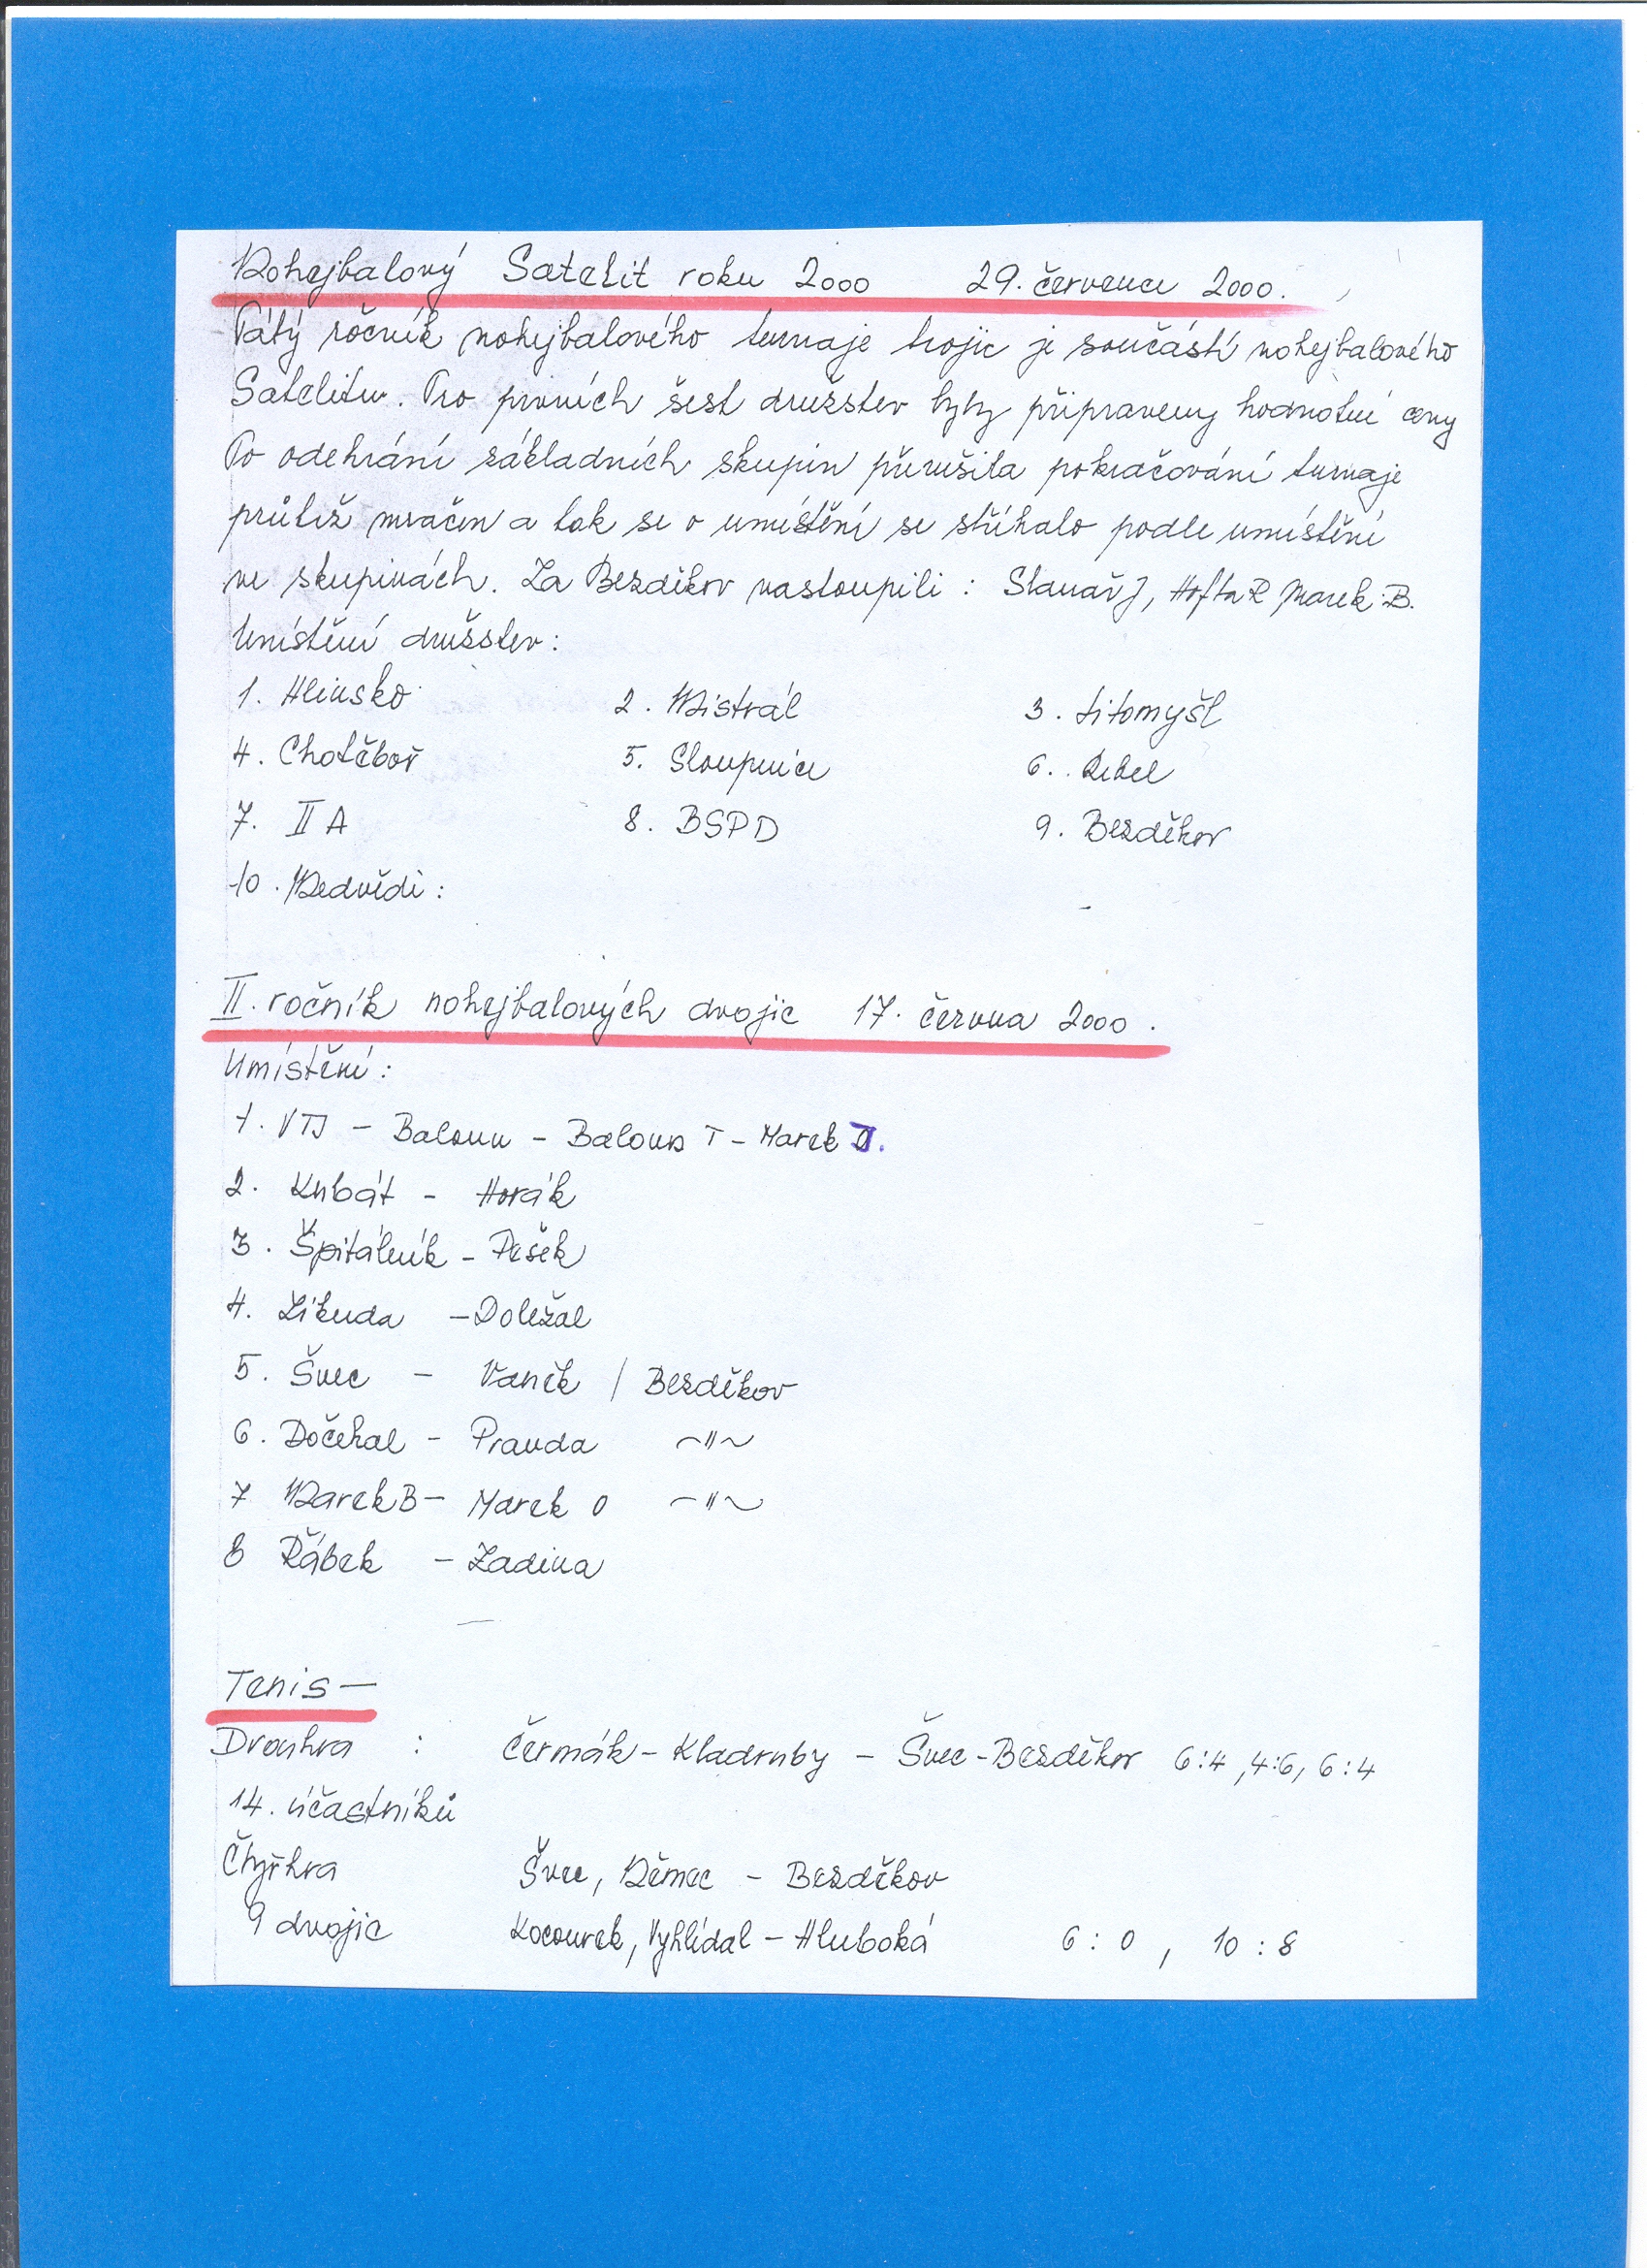 Nohejbalový Satelit roku 2000 29. července 2000.
Pátý ročník nohejbalového turnaje trojic je součástí nohejbalového
Satelitu. Pro prvních šest družstev byly připraveny hodnotné ceny
Po odehrání základních skupin přerušila pokračování turnaje
průtrž mračen a tak se o umístění se stříhalo podle umístění
ve skupinách. Za Bezděkov nastoupili : Slanař J, Hofta R Marek B.
Umístění družstev :
1. Hlinsko 2. Mistrál 3. Litomyšl
4. Chotěboř 5. Sloupnice 6. Rebel
7. II A 8. BSPD 9. Bezděkov
10. Medvědi :
II. ročník nohejbalových dvojic 17. června 2000.
Umístění :
1. VTJ - Baloun - Baloun T - Marek J.
2. Kubát - Horák
3. Špitálník - Pešek
4. Zikuda - Doležal
5. Švec - Vaněk / Bezděkov
6. Dočekal - Pravda ~"~
7 Marek B - Marek O ~"~
8 Řábek - Zadina
Tenis —
Dvouhra : Čermák - Kladruby - Švec - Bezděkov 6:4, 4:6, 6:4
14. účastníků
Čtyřhra Švec, Němec - Bezděkov
9 dvojic Kocourek, Vyhlídal - Hluboká 6 : 0 , 10 : 8